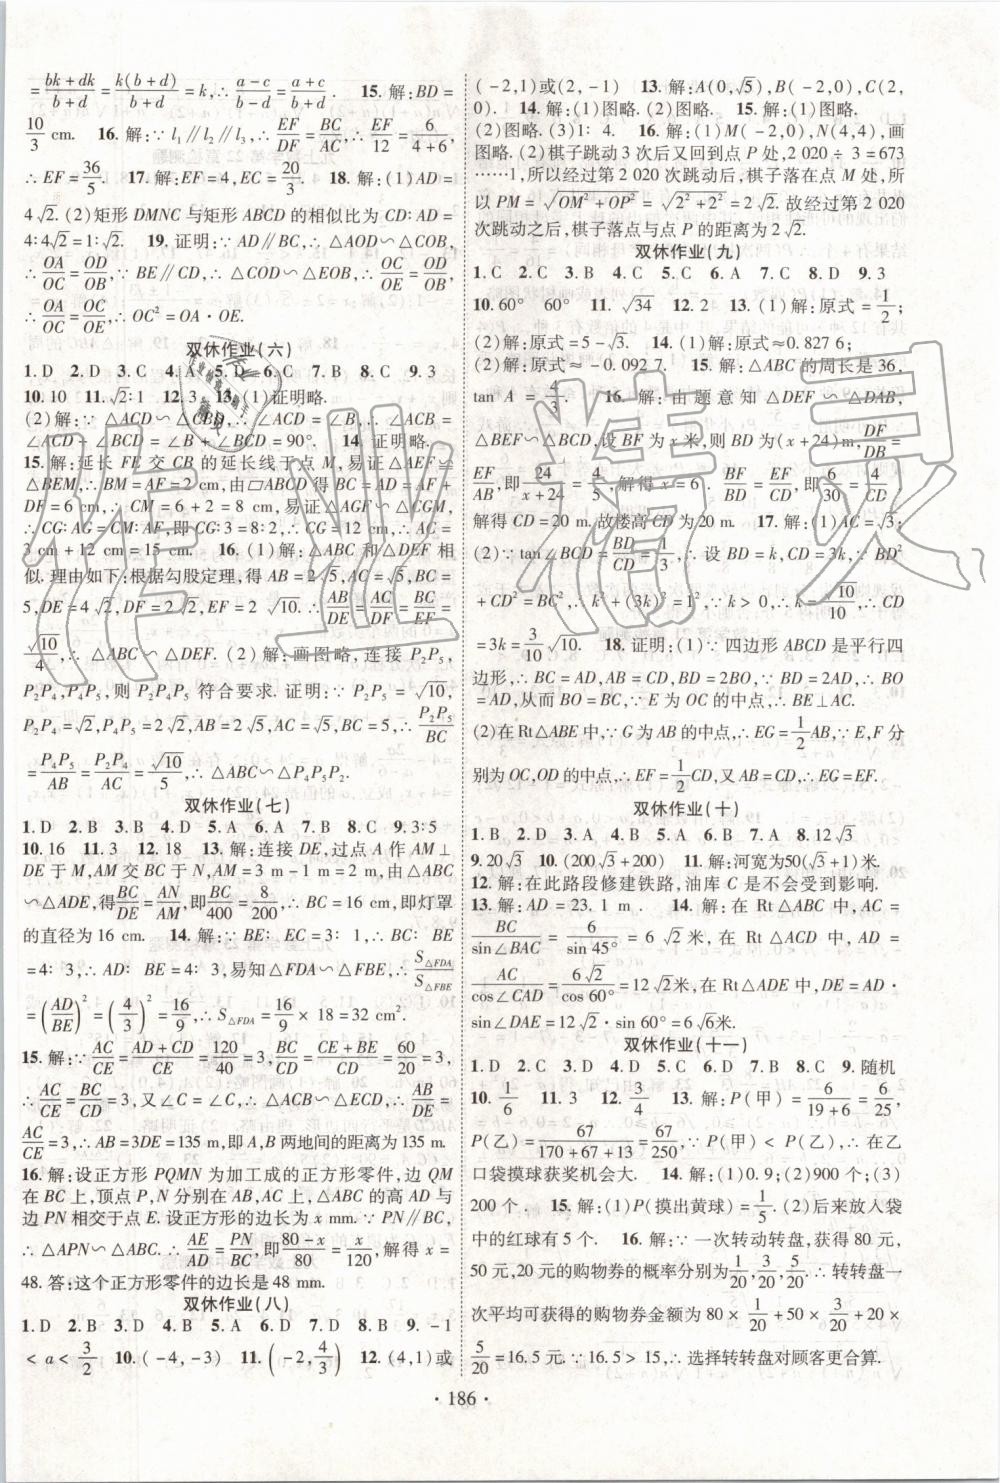 = (bk+dk)/(b+d) = k(b+d)/(b+d) = k,∴ (a-c)/(b-d) = (a+c)/(b+d). 15. 解:BD =
10/3 cm. 16. 解:∵ l₁∥l₂∥l₃,∴ EF/DF = BC/AC,∴ EF/12 = 6/(4+6),
∴ EF = 36/5. 17. 解:EF=4,EC=20/3. 18. 解:(1)AD=
4√2. (2)矩形 DMNC 与矩形 ABCD 的相似比为 CD∶AD=
4∶4√2=1∶√2. 19. 证明:∵ AD∥BC,∴ △AOD∽△COB,
∴ OA/OC = OD/OB,∵ BE∥CD,∴ △COD∽△EOB,∴ OC/OE = OD/OB,∴
OA/OC = OC/OE,∴ OC²=OA·OE.
双休作业(六)
1. D 2. D 3. C 4. A 5. D 6. C 7. D 8. C 9. 3
10. 10 11. √2∶1 12. 3 13. (1)证明略.
(2)解:∵ △ACD∽△CBD,∴ ∠ACD=∠B,∴ ∠ACB=
∠ACD+∠BCD=∠B+∠BCD=90°. 14. 证明略.
15. 解:延长 FE 交 CB 的延长线于点 M,易证△AEF≌
△BEM,∴ BM=AF=2 cm,由▱ABCD 得 BC=AD=AF+
DF=6 cm,∴ CM=6+2=8 cm,易证△AGF∽△CGM,
∴ CG∶AG=CM∶AF,即 CG∶3=8∶2,∴ CG=12 cm,∴ AC=
3 cm+12 cm=15 cm. 16. (1)解:△ABC 和△DEF 相
似. 理由如下:根据勾股定理,得 AB=2√5,AC=√5,BC=
5,DE=4√2,DF=2√2,EF=2√10. ∴ AB/DE = AC/DF = BC/EF =
√10/4,∴ △ABC∽△DEF. (2)解:画图略,连接 P₂P₅,
P₂P₄,P₄P₅,则 P₂P₄P₅ 符合要求. 证明:∵ P₂P₅=√10,
P₂P₄=√2,P₄P₅=2√2,AB=2√5,AC=√5,BC=5,∴ P₂P₅/BC
= P₄P₅/AB = P₂P₄/AC = √10/5,∴ △ABC∽△P₄P₅P₂.
双休作业(七)
1. D 2. B 3. B 4. D 5. A 6. A 7. B 8. C 9. 3∶5
10. 16 11. 3 12. 18 13. 解:连接 DE,过点 A 作 AM⊥
DE 于 M,AM 交 BC 于 N,AM=3 m-1 m=2 m,由△ABC
∽△ADE,得 BC/DE = AN/AM,即 BC/400 = 8/200,∴ BC=16 cm,即灯罩
的直径为 16 cm. 14. 解:∵ BE∶EC=3∶1,∴ BC∶BE
=4∶3,∴ AD∶BE=4∶3,易知△FDA∽△FBE,∴ S△FDA/S△FBE
= (AD/BE)² = (4/3)² = 16/9,∴ S△FDA = 16/9 × 18 = 32 cm².
15. 解:∵ AC/CE = (AD+CD)/CE = 120/40 = 3,BC/CD = (CE+BE)/CD = 60/20 = 3,
∴ AC/CE = BC/CD = 3,又∠C=∠C,∴ △ACB∽△ECD,∴ AB/DE =
AC/CE = 3,∴ AB=3DE=135 m,即 A,B 两地间的距离为 135 m.
16. 解:设正方形 PQMN 为加工成的正方形零件,边 QM
在 BC 上,顶点 P,N 分别在 AB,AC 上,△ABC 的高 AD 与
边 PN 相交于点 E. 设正方形的边长为 x mm. ∵ PN∥BC,
∴ △APN∽△ABC. ∴ AE/AD = PN/BC,即 (80-x)/80 = x/120,解得 x=
48. 答:这个正方形零件的边长是 48 mm.
双休作业(八)
1. D 2. B 3. D 4. B 5. A 6. D 7. B 8. B 9. -1
<a<3/2 10. (-4,-3) 11. (-2,4/3) 12. (4,1)或
(-2,1)或(2,-1) 13. 解:A(0,√5),B(-2,0),C(2,
0). 14. 解:(1)图略. (2)图略. 15. 解:(1)图略.
(2)图略. (3)1∶4. 16. 解:(1)M(-2,0),N(4,4),画
图略. (2)棋子跳动 3 次后又回到点 P 处,2 020÷3=673
……1,所以经过第 2 020 次跳动后,棋子落在点 M 处,所
以 PM=√(OM²+OP²)=√(2²+2²)=2√2. 故经过第 2 020
次跳动之后,棋子落点与点 P 的距离为 2√2.
双休作业(九)
1. C 2. C 3. B 4. C 5. C 6. A 7. D 8. D 9. 3
10. 60° 60° 11. √34 12. 2 13. (1)解:原式=1/2;
(2)解:原式=5-√3. 14. (1)解:原式≈0.827 6;
(2)解:原式≈-0.092 7. 15. 解:△ABC 的周长是 36,
tan A = 4/3. 16. 解:由题意知△DEF∽△DAB,
△BEF∽△BCD,设 BF 为 x 米,则 BD 为(x+24)m,DF/DB =
EF/AB,即 24/(x+24) = 4/5,解得 x=6. ∵ BF/BD = EF/CD,即 6/30 = 4/CD,
解得 CD=20 m. 故楼高 CD 为 20 m. 17. 解:(1)AC=√3;
(2)∵ tan∠BCD = BD/CD = 1/3,∴ 设 BD=k,CD=3k,∵ BD²
+CD²=BC²,∴ k²+(3k)²=1²,∵ k>0,∴ k=√10/10,∴ CD
=3k=3/10 √10. 18. 证明:(1)∵ 四边形 ABCD 是平行四
边形,∴ BC=AD,AB=CD,BD=2BO,∵ BD=2AD,∴ BO
=AD,从而 BO=BC,∵ E 为 OC 的中点,∴ BE⊥AC.
(2)在 Rt△ABE 中,∵ G 为 AB 的中点,∴ EG=1/2 AB,∵ E,F 分
别为 OC,OD 的中点,∴ EF=1/2 CD,又 AB=CD,∴ EG=EF.
双休作业(十)
1. B 2. D 3. D 4. A 5. B 6. A 7. A 8. 12√3
9. 20√3 10. (200√3+200) 11. 解:河宽为50(√3+1)米.
12. 解:在此路段修建铁路,油库 C 是不会受到影响.
13. 解:AD=23.1 m. 14. 解:在 Rt△ABC 中,AC=
BC/sin∠BAC = 6/sin 45° = 6√2 米,在 Rt△ACD 中,AD=
AC/cos∠CAD = 6√2/cos60° = 12√2米,在 Rt△ADE 中,DE=AD·
sin∠DAE=12√2·sin 60°=6√6米.
双休作业(十一)
1. D 2. C 3. D 4. C 5. D 6. D 7. B 8. C 9. 随机
10. 1/6 11. 3 12. 3/4 13. 解:P(甲)=6/(19+6)=6/25,
P(乙)=67/(170+67+13)=67/250,∵ P(甲)<P(乙),∴ 在乙
口袋摸球获奖机会大. 14. 解:(1)0.9;(2)900 个;(3)
200 个. 15. 解:(1)P(摸出黄球)=1/5. (2)后来放入袋
中的红球有 5 个. 16. 解:∵ 一次转动转盘,获得 80 元,
50 元,20 元的购物券的概率分别为1/20,3/20,5/20. ∴ 转转盘一
次平均可获得的购物券金额为 80×1/20+50×3/20+20×
5/20=16.5 元. ∵ 16.5>15,∴ 选择转转盘对顾客更合算.
· 186 ·
作业精灵